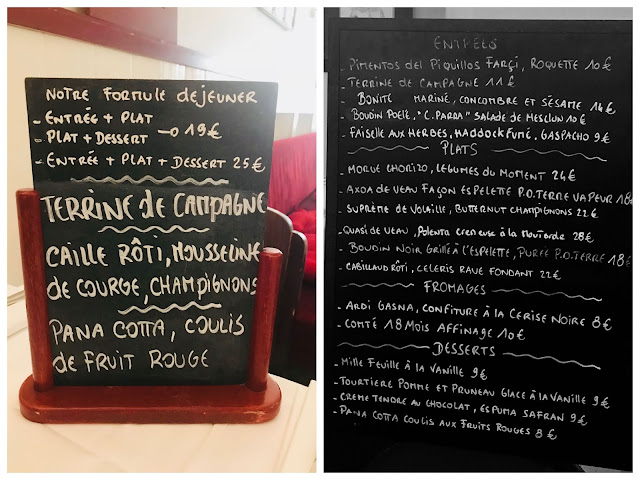 NOTRE FORMULE DEJEUNER
- ENTRÉE + PLAT
- PLAT + DESSERT → 19€
- ENTRÉE + PLAT + DESSERT 25€
TERRINE de CAMPAGNE
CAILLE RÔTI, MOUSSELINE
de COURGE, CHAMPIGNONS
PANA COTTA, COULIS
de FRUIT ROUGE
ENTREES
- PIMENTOS del PIQUILLOS FARÇI, ROQUETTE 10€
- TERRINE de CAMPAGNE 11€
- BONITE MARINÉ, CONCOMBRE ET SÉSAME 14€
- BOUDIN POELÉ, "C. PARRA" SALADE de MESCLUN 10€
- FAISELLE AUX HERBES, HADDOCK FUMÉ, GASPACHO 9€
PLATS
- MORUE CHORIZO, LEGUMES du MOMENT 24€
- AXOA DE VEAU FAÇON ESPELETTE P.D.TERRE VAPEUR 18€
- SUPRÈME DE VOLAILLE, BUTTERNUT CHAMPIGNONS 22€
- QUASI DE VEAU, Polenta cremeuse à la Moutarde 28€
- BOUDIN NOIR GRILLÉ À L'ESPELETTE, PURÉE P.D.TERRE 18€
- CABILLAUD RÔTI, CELERIS RAVE FONDANT 22€
FROMAGES
- ARDI GASNA, CONFITURE À LA CERISE NOIRE 8€
- COMTÉ 18 MOIS AFFINAGE 10€
DESSERTS
- MILLE FEUILLE À LA VANILLE 9€
- TOURTIERE POMME ET PRUNEAU GLACE À LA VANILLE 9€
- CREME TENDRE AU CHOCOLAT, ESPUMA SAFRAN 9€
- PANA COTTA COULIS AUX FRUITS ROUGES 8€